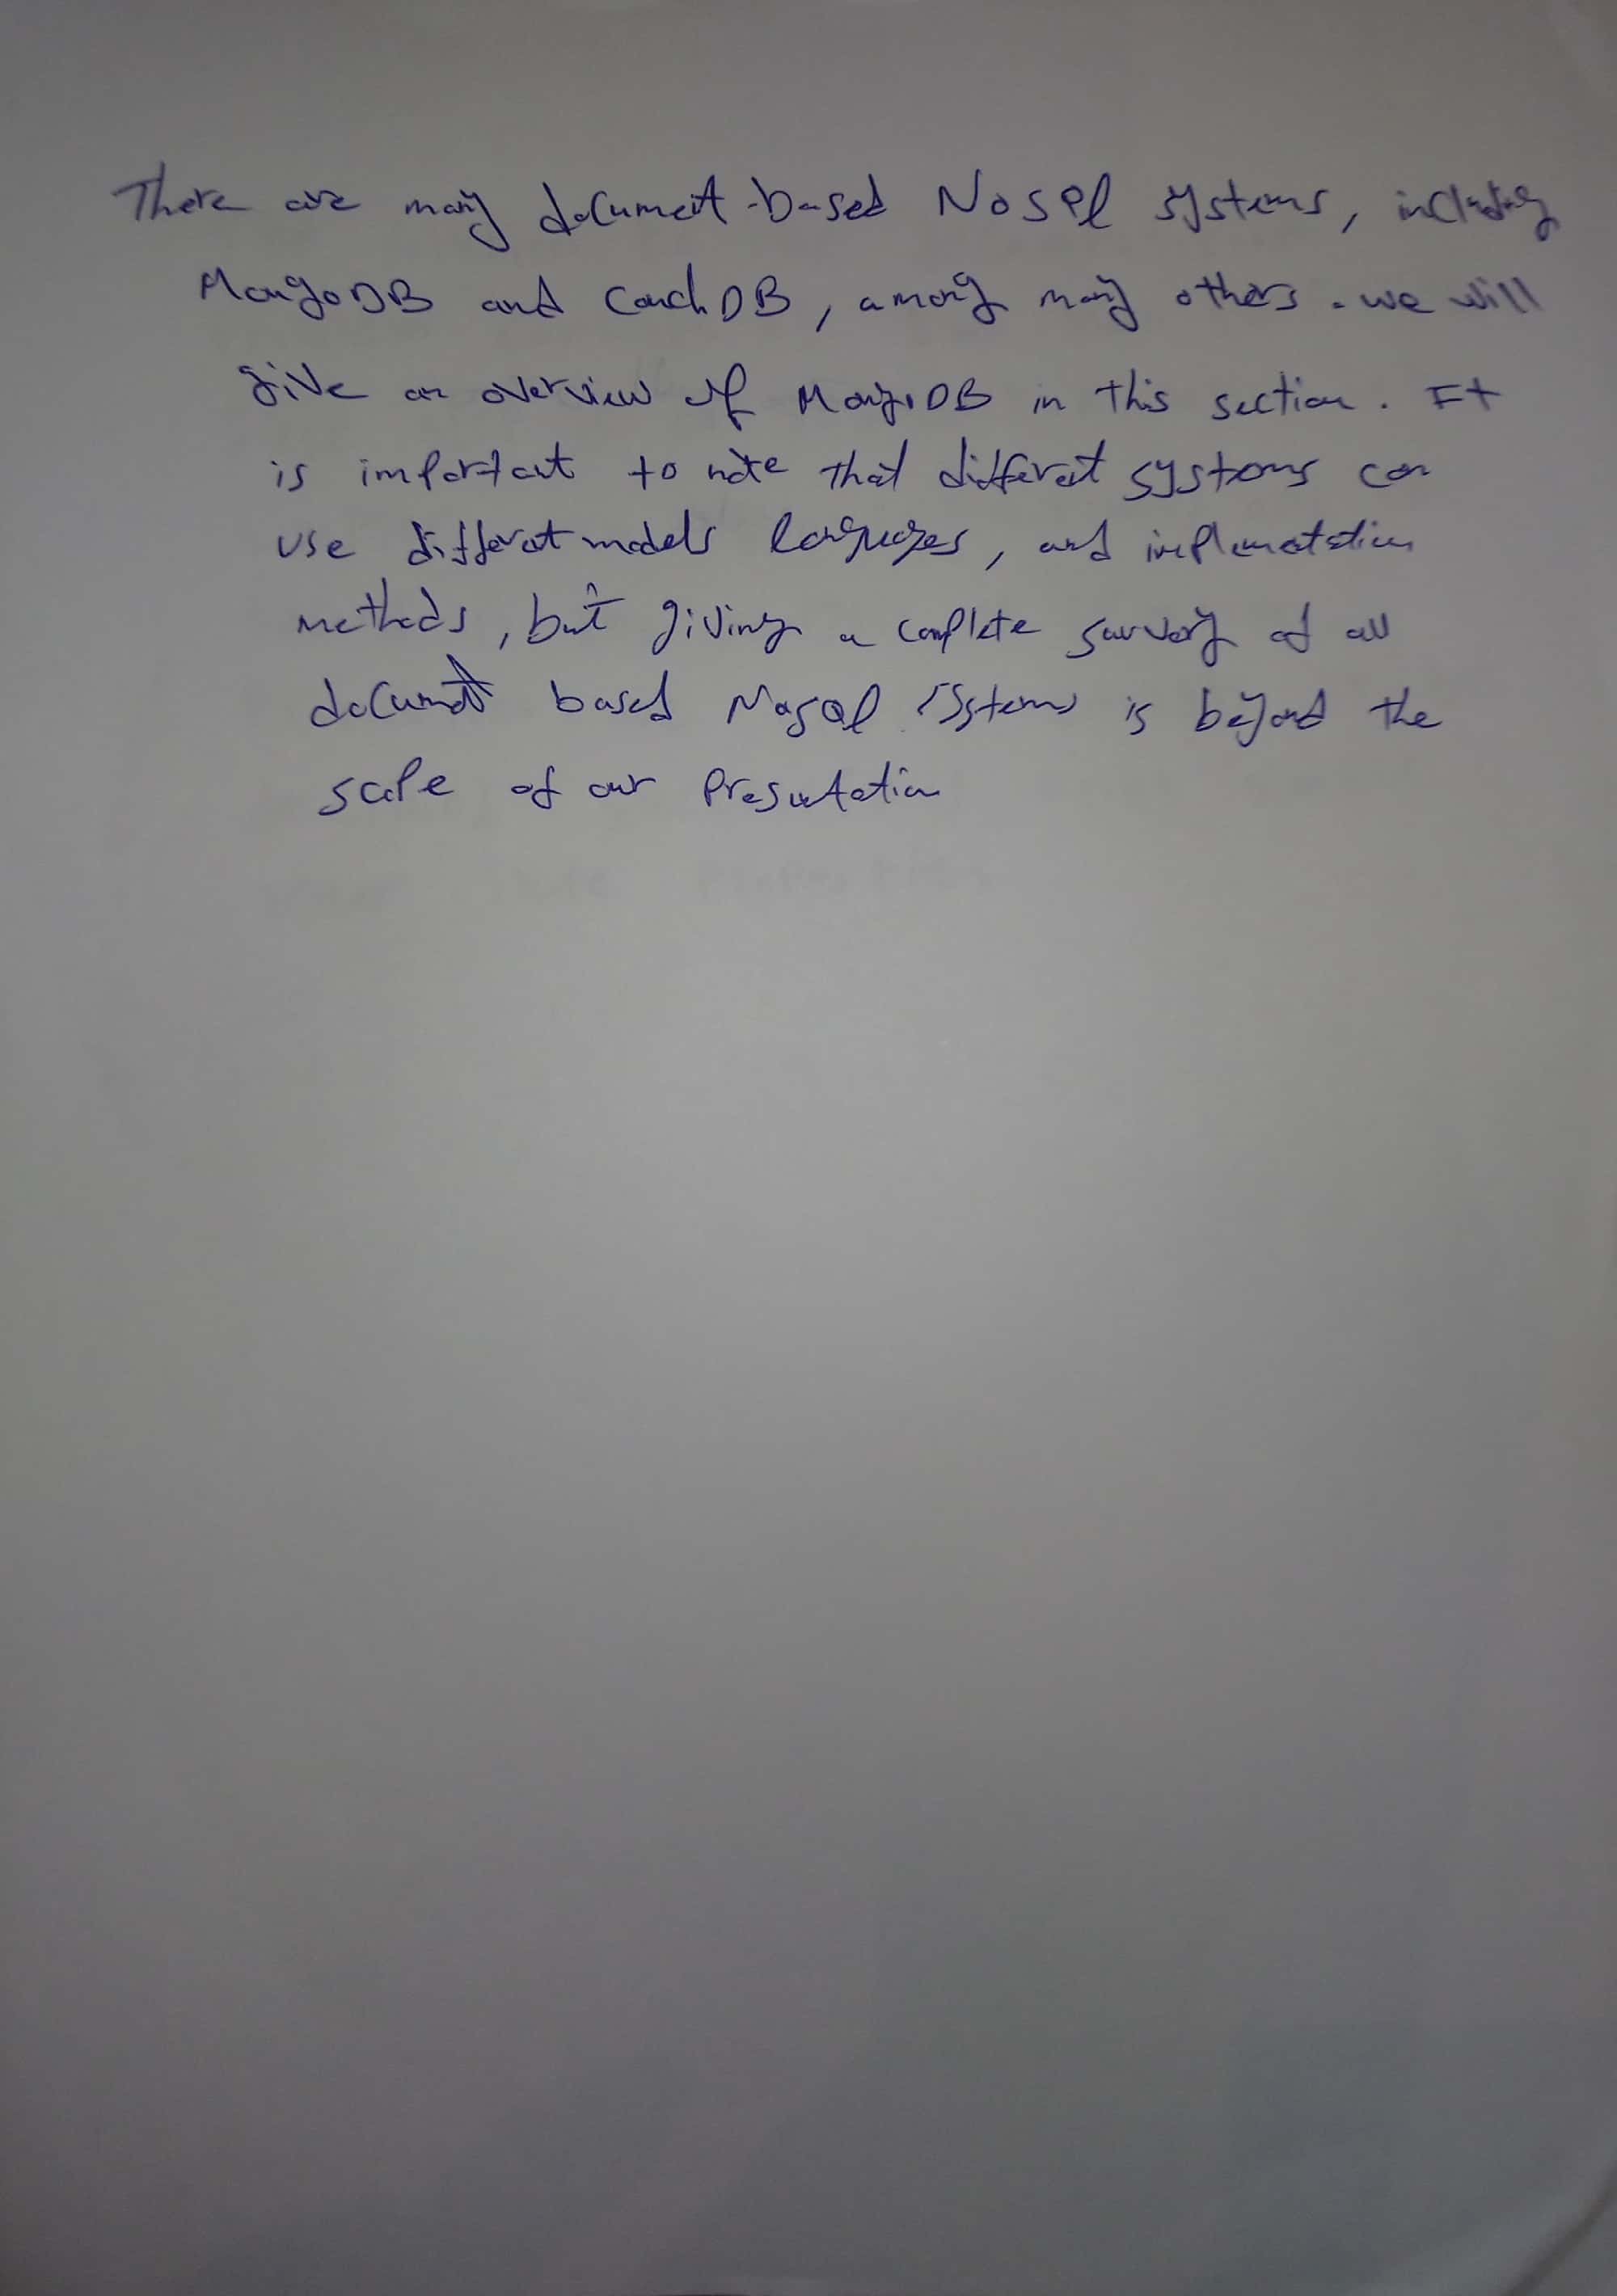 There are many document-based NOSQL systems, including
MongoDB and CouchDB, among many others. we will
give an overview of MongoDB in this section. It
is important to note that different systems can
use different models languages, and implementation
methods, but giving a complete survey of all
document based NOSQL systems is beyond the
scope of our presentation